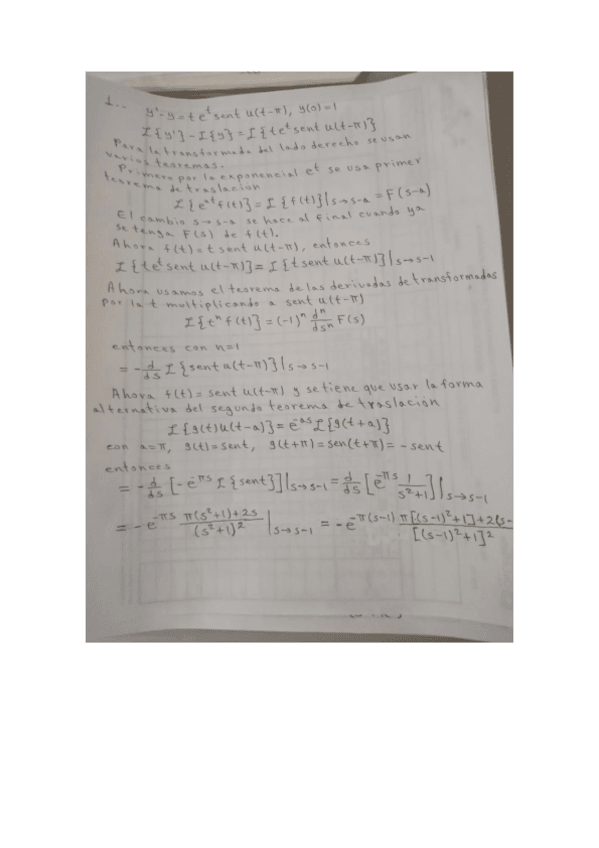 1.. y'-y=te^t sent u(t-π), y(0)=1
ℒ{y'}-ℒ{y}=ℒ{te^t sent u(t-π)}
Para la transformada del lado derecho se usan
varios teoremas.
Primero por la exponencial e^t se usa primer
teorema de traslacion
ℒ{e^{at}f(t)}=ℒ{f(t)}|s→s-a=F(s-a)
El cambio s→s-a se hace al final cuando ya
se tenga F(s) de f(t).
Ahora f(t)=t sent u(t-π), entonces
ℒ{te^t sent u(t-π)}=ℒ{t sent u(t-π)}|s→s-1
Ahora usamos el teorema de las derivadas de transformadas
por la t multiplicando a sent u(t-π)
ℒ{t^n f(t)}=(-1)^n d^n/ds^n F(s)
entonces con n=1
=-d/ds ℒ{sent u(t-π)}|s→s-1
Ahora f(t)=sent u(t-π) y se tiene que usar la forma
alternativa del segundo teorema de traslación
ℒ{g(t)u(t-a)}=e^{-as}ℒ{g(t+a)}
con a=π, g(t)=sent, g(t+π)=sen(t+π)=-sent
entonces
=-d/ds[-e^{-πs}ℒ{sent}]|s→s-1=d/ds[e^{-πs} 1/(s²+1)]|s→s-1
=-e^{-πs} (π(s²+1)+2s)/(s²+1)² |s→s-1 = -e^{-π(s-1)} π[(s-1)²+1]+2(s-/[(s-1)²+1]²